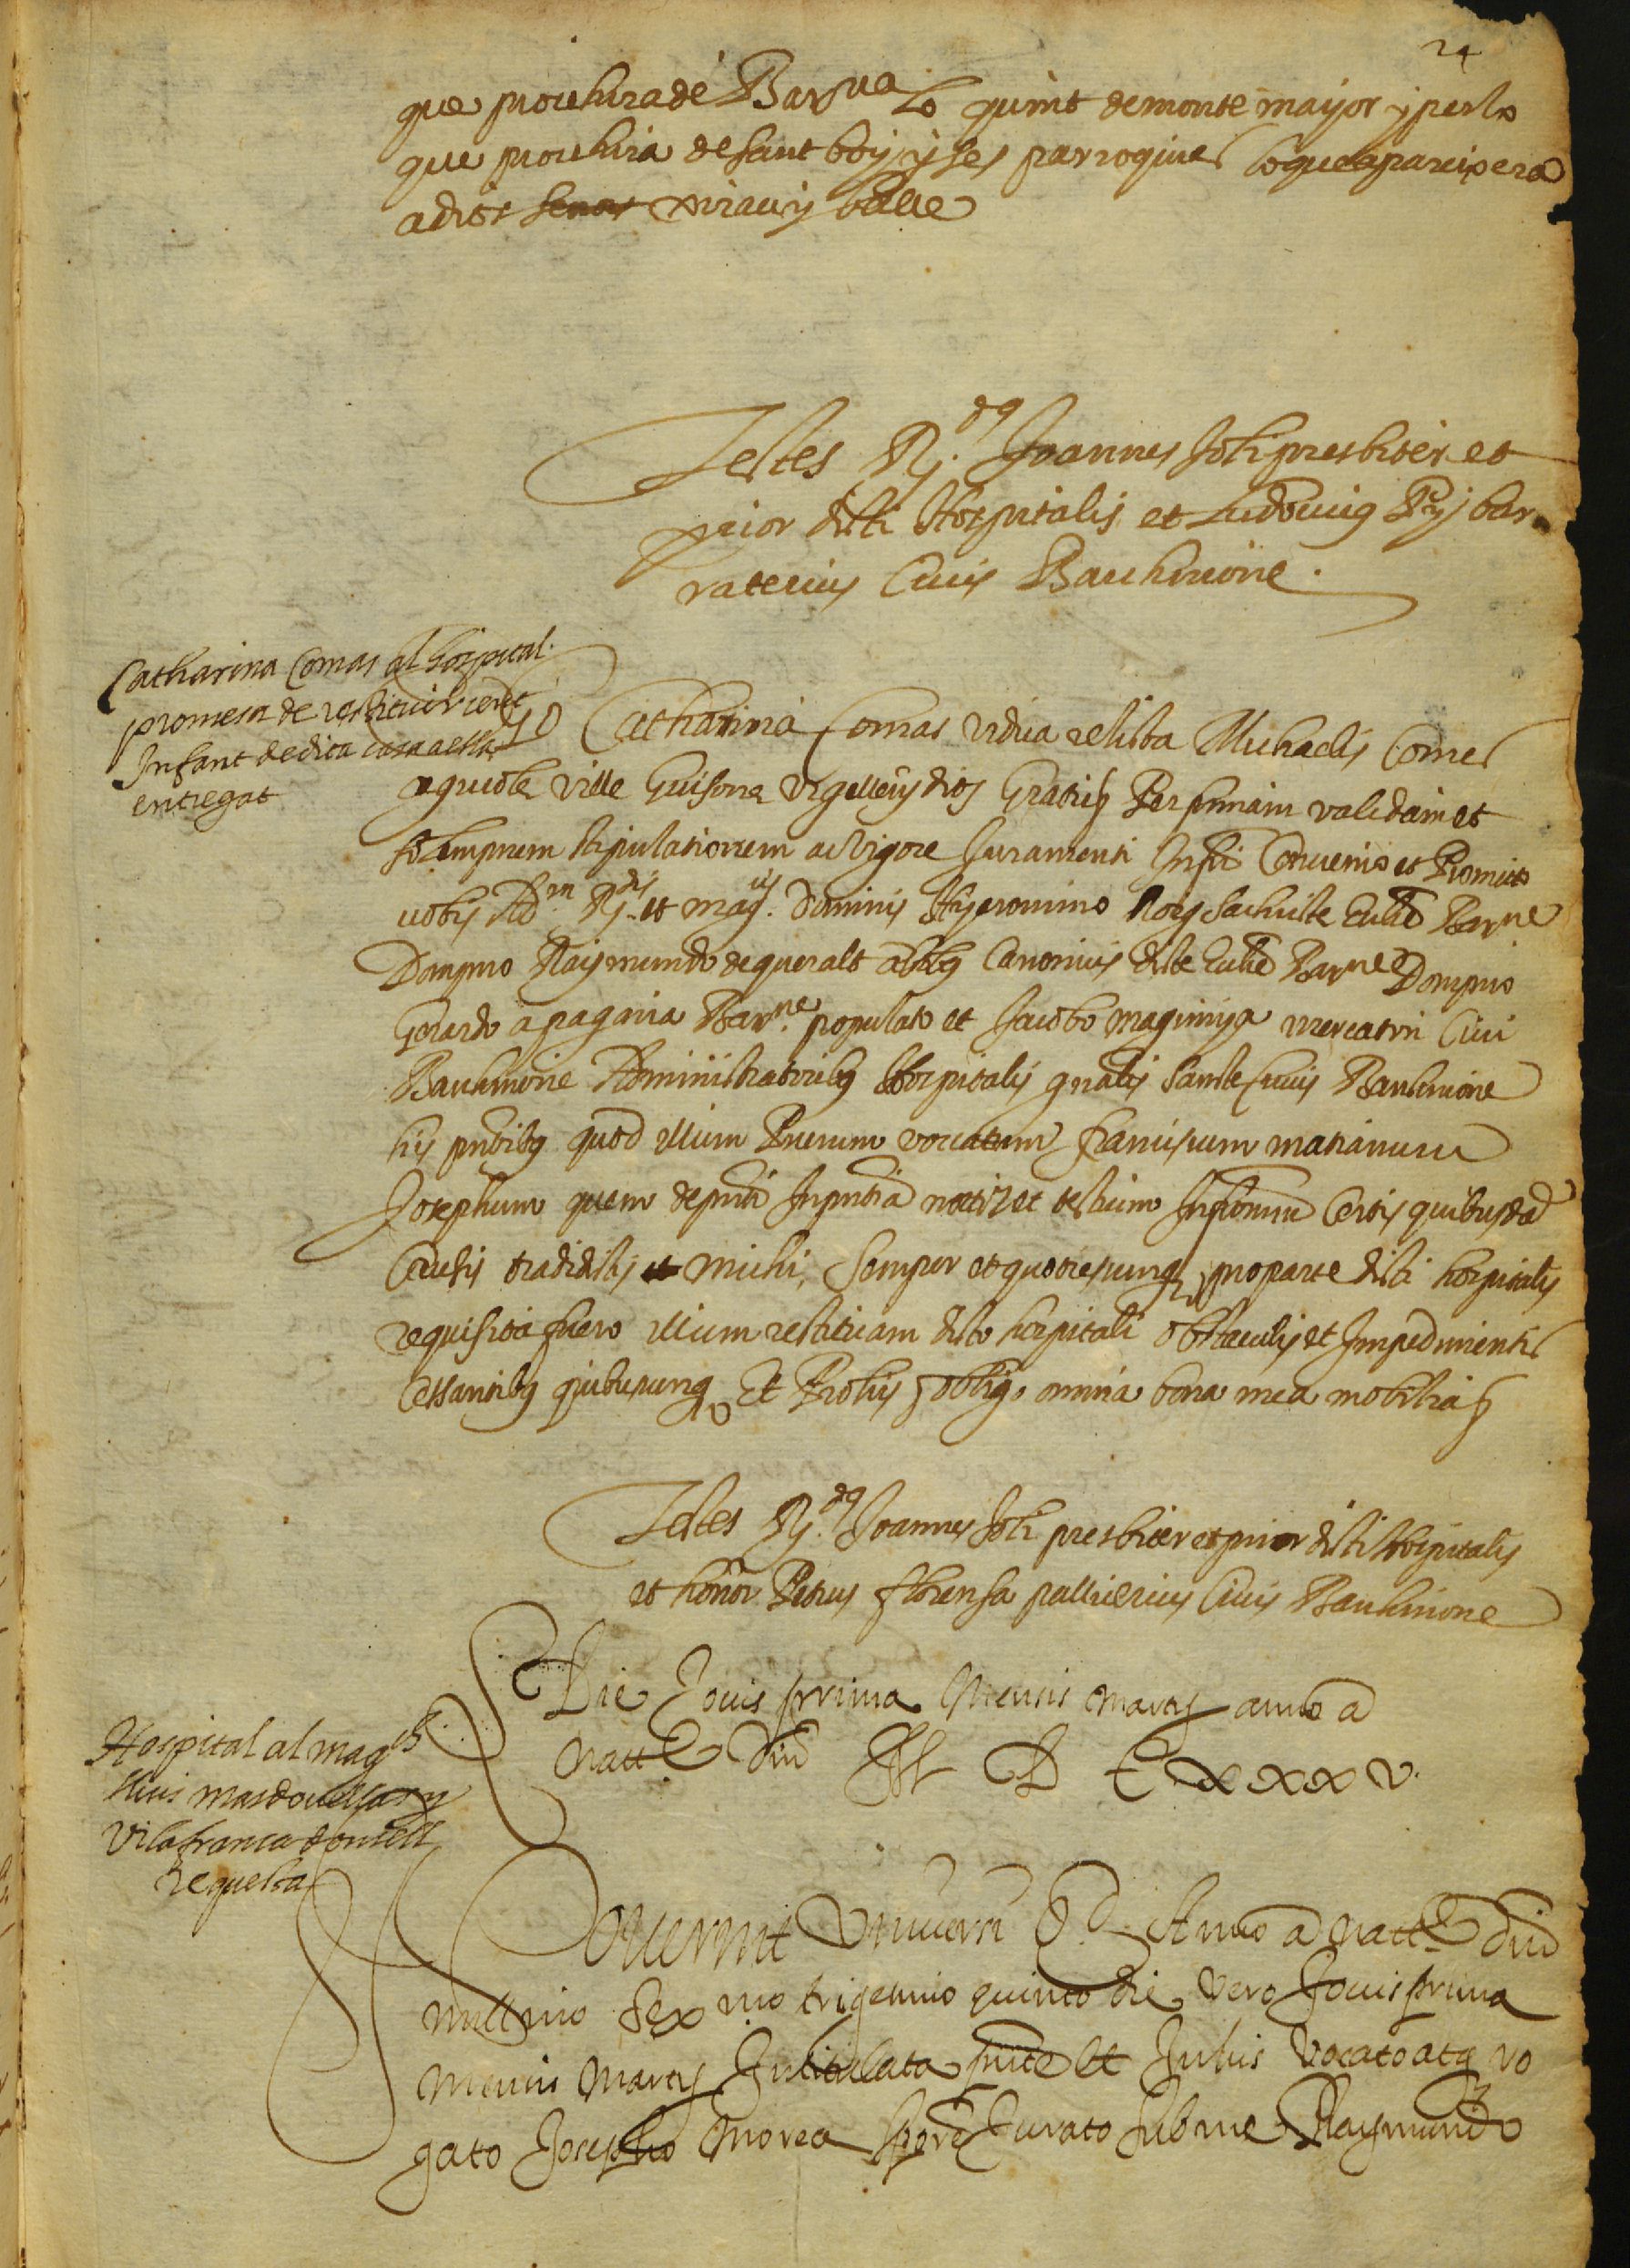 24
que procehira de Barna lo quint de monte mayor y per lo
que procehira de sant boy y ses parroquies lo que apareixera
a dits senor miracy balle
Testes Rj.dq Joannes Soli presbiter et
prior dicti Hospitalis et Ludovicq Pij bar
raterius Civis Barchinone.
Catharina Comas al hospital.
promesa de restituir cert
Infant de dita casa a ella
entregat
Ego Catharina Comas vidua relicta Michaelis Comes
agricole ville Guisone Urgellen dios Gratis Per firmam validam et
solempnem stipulationem ac vigore Juramenti Infri Convenio et Promitto
vobis Adm Rdis et magcis Dominis Hyeronimo Roig sachriste Eccle Barne
Dompno Raymundo de queralt abbq Canonicis dicte Eccle Barne Dompno
Gerardo a paguera Barne. populato et Jacobo maginya mercatori Civi
Barchinone Administratoribq Hospitalis gnalis Sancte Crucis Barchinone
his pntibq quod illum Puerum vocatum Franciscum marianum
Josephum quem de pnti In pntia notarii et testium Infrorum Certis quibusda
Causis tradidistis michi, Semper et quotiescunq pro parte dicti hospitalis
requisita fuero illum restituam dicto hospitali obstaculis et Impedimentis
Cessantibq quibuscunq Et Pro his obligo omnia bona mea mobilia
Testes Rj.dq Joannes Soli presbiter et prior dicti Hospitalis
et honor Petrus florensa pallierius Civis Barchinone
Die Jovis prima Mensis Martij anno a
Natte Dni M D C xxxv.
Hospital al magch
lluis masdovelles en
Vilafranca domell
Requesta
Noverint Universi Qd. Anno a Natte Dni
millmo Sexmo trigesimo quinto die vero Jovis prima
Mensis Martij Intitulata pnte et Infris Vocato atq ro
gato Josepho Morea Spore Jurato sub me Raymundo